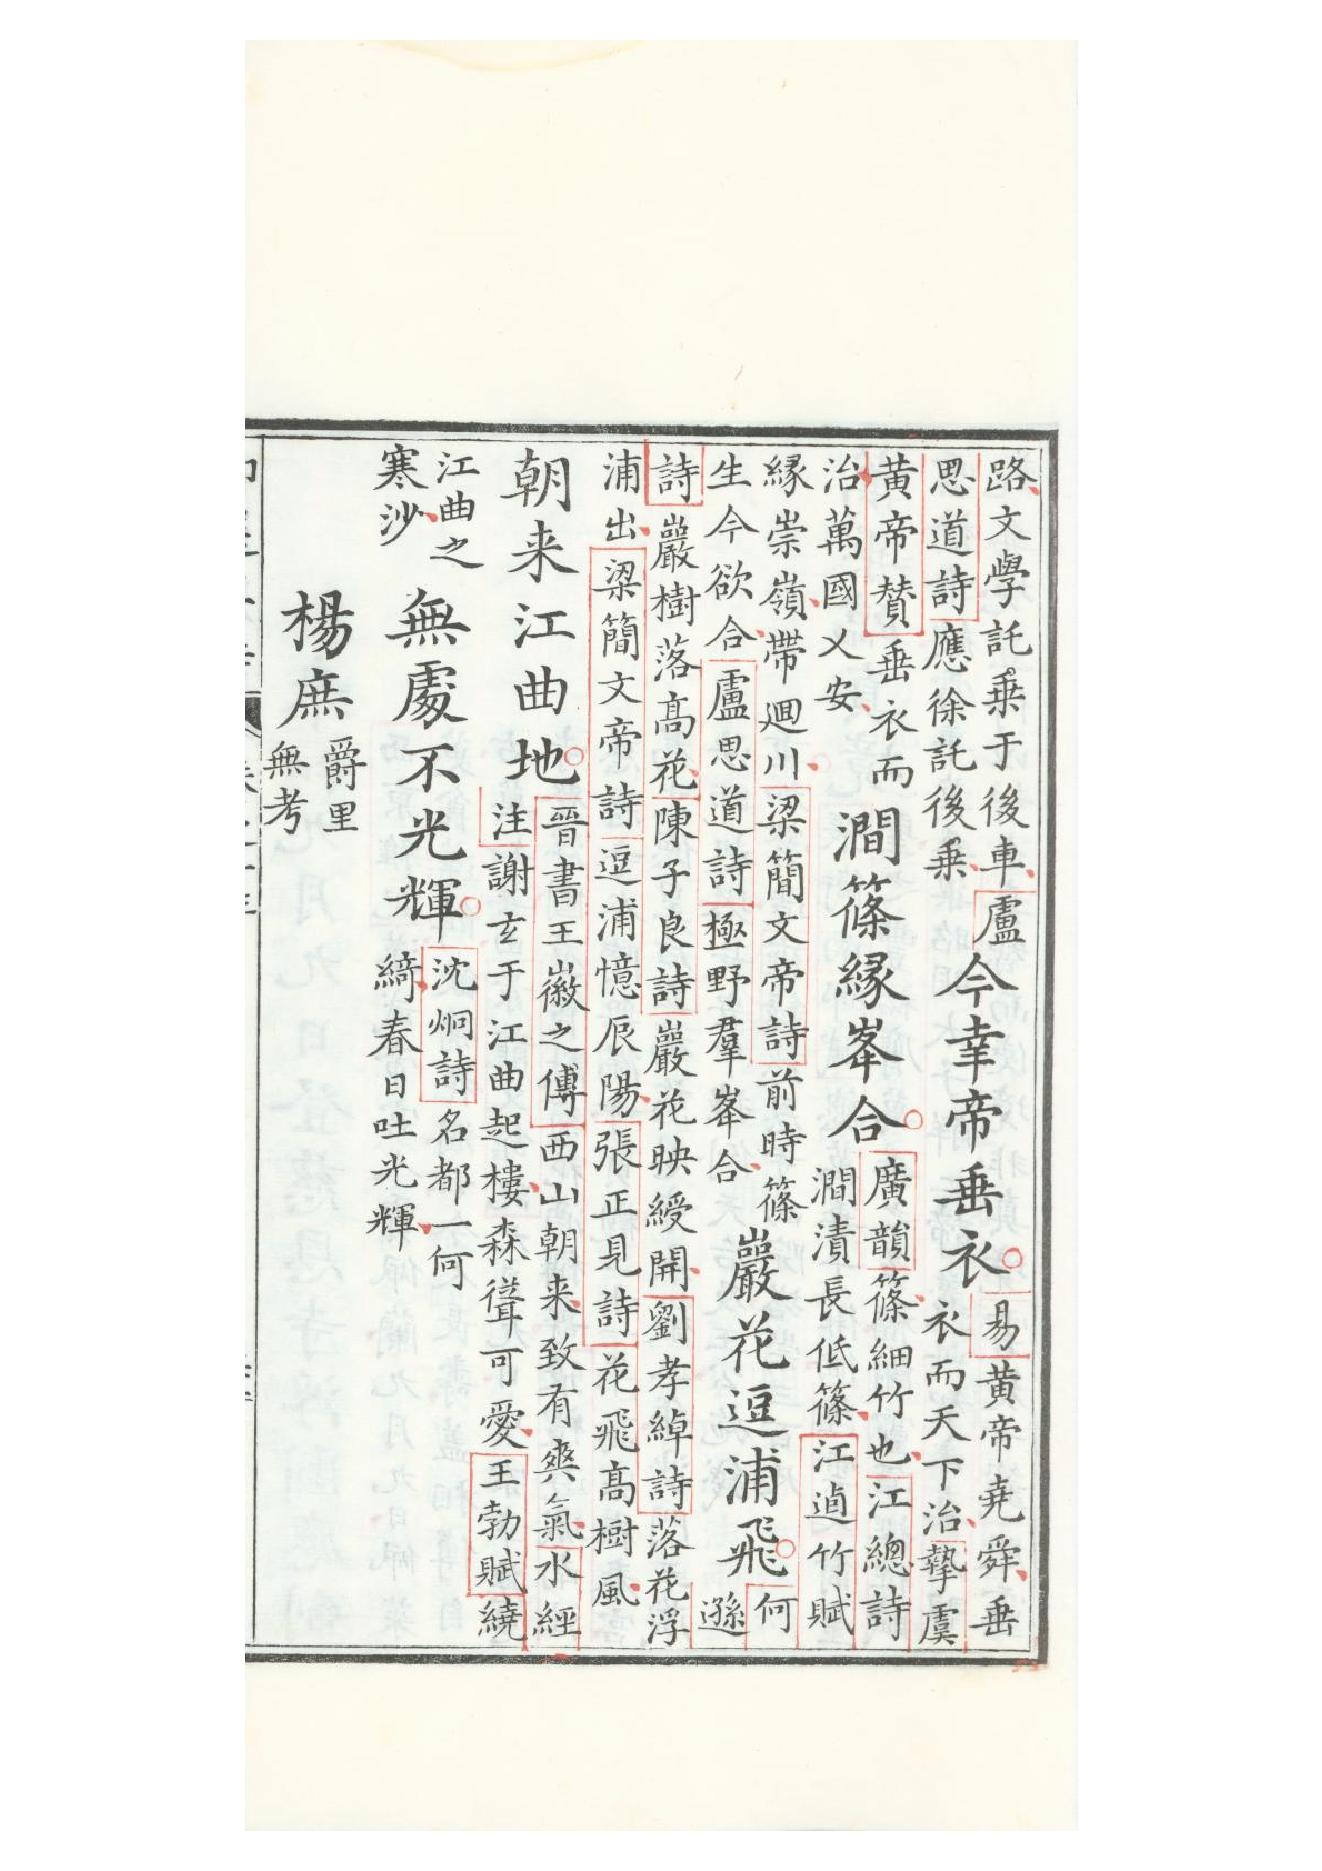 路文學託乗于後車盧
思道詩應徐託後乗
今幸帝垂衣
易黄帝堯舜垂
衣而天下治摯虞
黄帝賛垂衣而
治萬國乂安
澗篠縁峯合
廣韻篠細竹也江總詩
澗漬長低篠江逌竹賦
縁崇嶺帶廻川梁簡文帝詩前時篠
生今欲合盧思道詩極野羣峯合
巖花逗浦飛
何
遜
詩巖樹落高花陳子良詩巖花映綬開劉孝綽詩落花浮
浦出梁簡文帝詩逗浦憶辰陽張正見詩花飛高樹風
朝来江曲地
晉書王徽之傅西山朝来致有爽氣水經
注謝玄于江曲起樓森聳可愛王勃賦繞
江曲之
寒沙
無處不光輝
沈炯詩名都一何
綺春日吐光輝
楊庶
爵里
無考